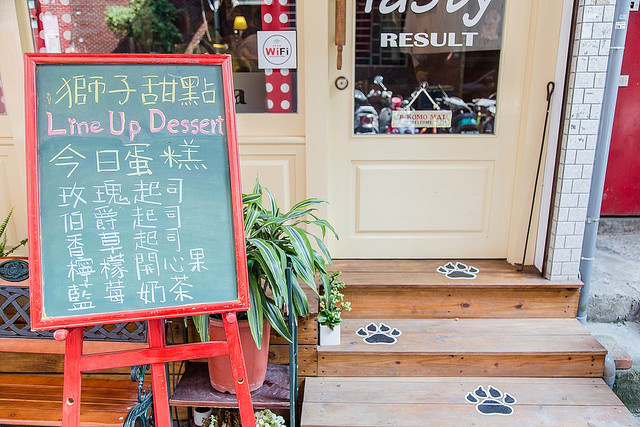 獅子甜點
Line Up Dessert
今日蛋糕
玫瑰起司
伯爵起司
香草起司
檸檬開心果
藍莓奶茶
WiFi
Tasty
RESULT